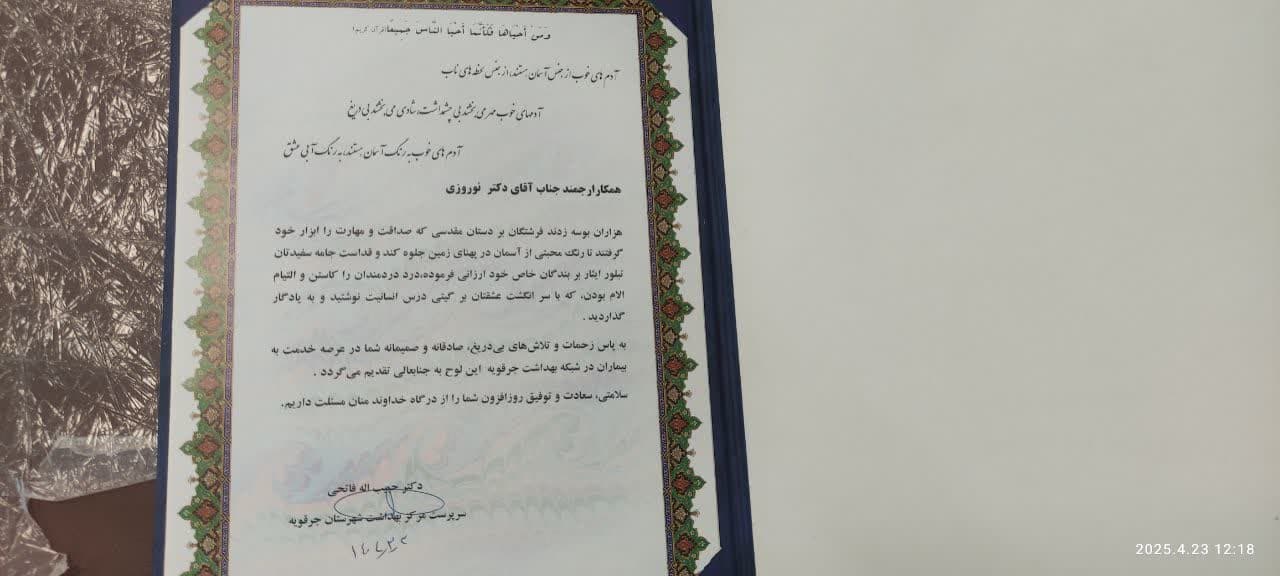 وَمَنْ أَحْيَاهَا فَكَأَنَّمَا أَحْيَا النَّاسَ جَمِيعًا(قرآن کریم)
آدم های خوب از جنس آسمان هستند، از جنس لحظه های ناب
آدمهای خوب مهر می بخشند بی چشمداشت، شادی می بخشند بی دریغ
آدم های خوب به رنگ آسمان هستند، به رنگ آبی عشق
همکارارجمند جناب آقای دکتر نوروزی
هزاران بوسه زدند فرشتگان بر دستان مقدسی که صداقت و مهارت را ابزار خود
گرفتند تا رنگ محبتی از آسمان در پهنای زمین جلوه کند و قداست جامه سفیدتان
تبلور ایثار بر بندگان خاص خود ارزانی فرموده،درد دردمندان را کاستن و التیام
الام بودن، که با سر انگشت عشقتان بر گیتی درس انسانیت نوشتید و به یادگار
گذاردید .
به پاس زحمات و تلاش‌های بی‌دریغ، صادقانه و صمیمانه شما در عرصه خدمت به
بیماران در شبکه بهداشت جرقویه این لوح به جنابعالی تقدیم می‌گردد .
سلامتی، سعادت و توفیق روزافزون شما را از درگاه خداوند منان مسئلت داریم.
دکتر حبیب اله فاتحی
سرپرست مرکز بهداشت شهرستان جرقویه
2025.4.23 12:18